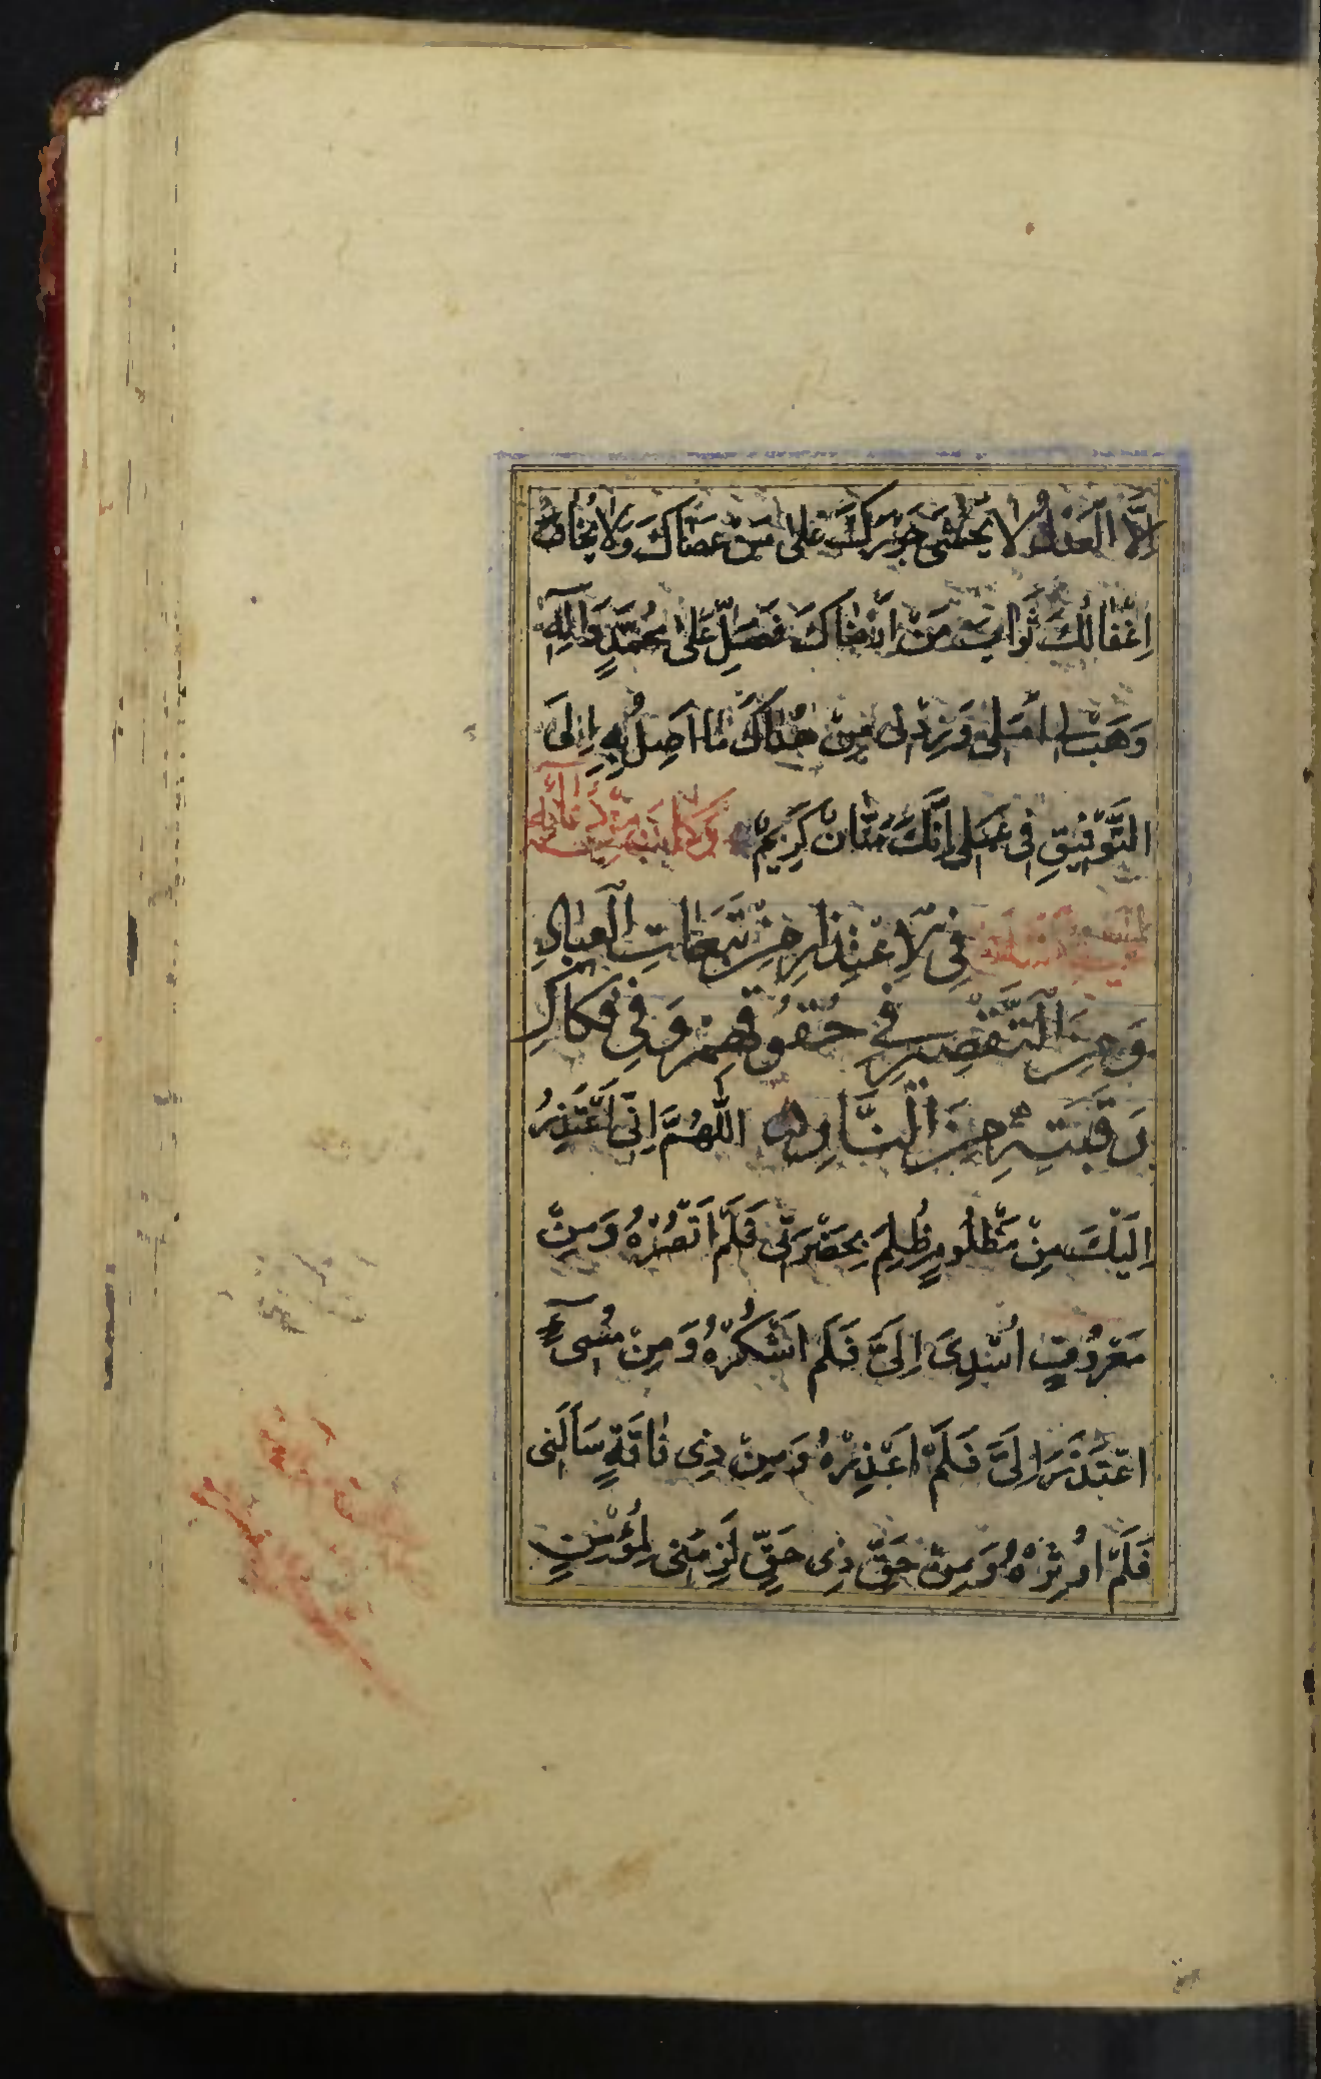 اِلَّا الْعَدْلُ لَا يُخْشٰى جَوْرُكَ عَلٰى مَنْ عَصَاكَ وَلَا يُخَافُ
اِغْفَالُكَ ثَوَابَ مَنْ اَرْضَاكَ فَصَلِّ عَلٰى مُحَمَّدٍ وَاٰلِهِ
وَهَبْ لِي اَمَلِي وَزِدْنِي مِنْ هُدَاكَ مَا اَصِلُ بِهِ اِلَى
التَّوْفِيقِ فِي عَمَلِي اِنَّكَ مَنَّانٌ كَرِيمٌ وَكَانَ مِنْ دُعَائِهِ
فِي الْاِعْتِذَارِ مِنْ تَبِعَاتِ الْعِبَادِ
وَمِنَ التَّقْصِيرِ فِي حُقُوقِهِمْ وَفِي فَكَاكِ
رَقَبَتِهِ مِنَ النَّارِ اَللّٰهُمَّ اِنِّي اَعْتَذِرُ
اِلَيْكَ مِنْ مَظْلُومٍ ظُلِمَ بِحَضْرَتِي فَلَمْ اَنْصُرْهُ وَمِنْ
مَعْرُوفٍ اُسْدِيَ اِلَيَّ فَلَمْ اَشْكُرْهُ وَمِنْ مُسِيءٍ
اعْتَذَرَ اِلَيَّ فَلَمْ اَعْذِرْهُ وَمِنْ ذِي فَاقَةٍ سَاَلَنِي
فَلَمْ اُوثِرْهُ وَمِنْ حَقِّ ذِي حَقٍّ لَزِمَنِي لِمُؤْمِنٍ